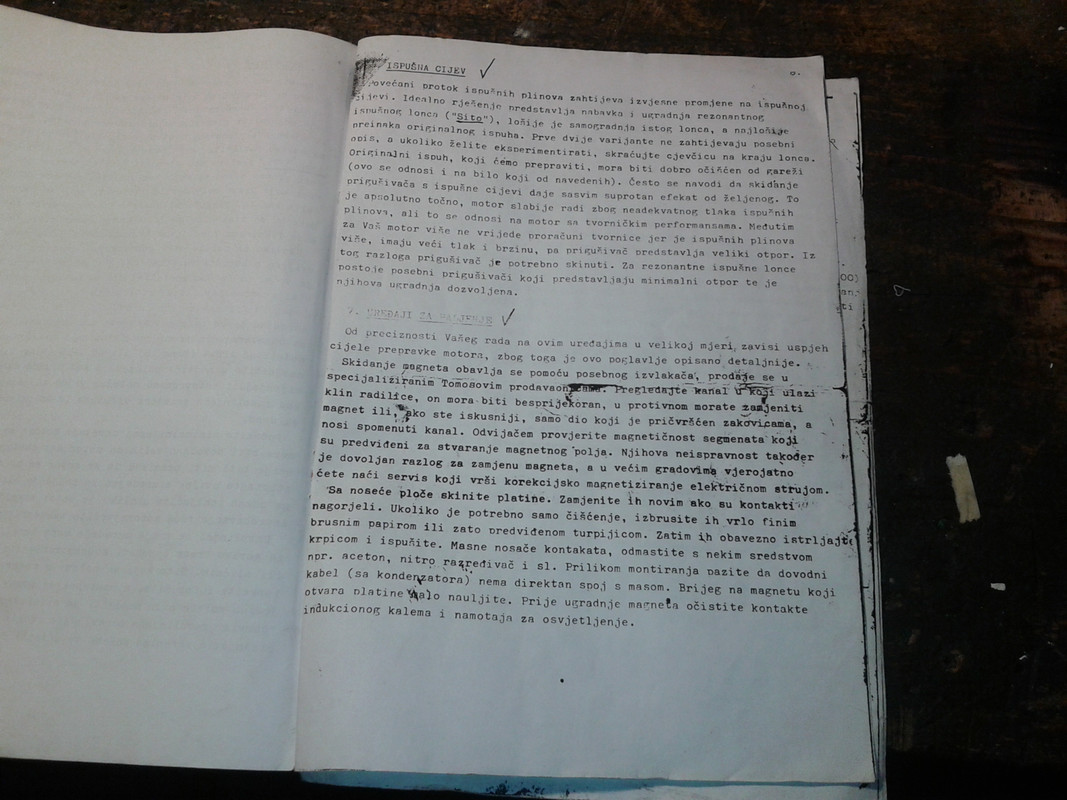 ISPUŠNA CIJEV
ovećani protok ispušnih plinova zahtijeva izvjesne promjene na ispušnoj
cijevi. Idealno rješenje predstavlja nabavka i ugradnja rezonantnog
ispušnog lonca ("Sito"), lošije je samogradnja istog lonca, a najlošije
preinaka originalnog ispuha. Prve dvije varijante ne zahtijevaju posebni
opis, a ukoliko želite eksperimentirati, skraćujte cjevčicu na kraju lonca.
Originalni ispuh, koji ćemo prepraviti, mora biti dobro očišćen od gareži
(ovo se odnosi i na bilo koji od navedenih). Često se navodi da skidanje
prigušivača s ispušne cijevi daje sasvim suprotan efekat od željenog. To
je apsolutno točno, motor slabije radi zbog neadekvatnog tlaka ispušnih
plinova, ali to se odnosi na motor sa tvorničkim performansama. Međutim
za Vaš motor više ne vrijede proračuni tvornice jer je ispušnih plinova
više, imaju veći tlak i brzinu, pa prigušivač predstavlja veliki otpor. Iz
tog razloga prigušivač je potrebno skinuti. Za rezonantne ispušne lonce
postoje posebni prigušivači koji predstavljaju minimalni otpor te je
njihova ugradnja dozvoljena.
7. UREĐAJI ZA PALJENJE
Od preciznosti Vašeg rada na ovim uređajima u velikoj mjeri zavisi uspjeh
cijele prepravke motora, zbog toga je ovo poglavlje opisano detaljnije.
Skidanje magneta obavlja se pomoću posebnog izvlakača, prodaje se u
specijaliziranim Tomosovim prodavaonicama. Pregledajte kanal u koji ulazi
klin radilice, on mora biti besprijekoran, u protivnom morate zamjeniti
magnet ili, ako ste iskusniji, samo dio koji je pričvršćen zakovicama, a
nosi spomenuti kanal. Odvijačem provjerite magnetičnost segmenata koji
su predviđeni za stvaranje magnetnog polja. Njihova neispravnost također
je dovoljan razlog za zamjenu magneta, a u većim gradovima vjerojatno
ćete naći servis koji vrši korekcijsko magnetiziranje električnom strujom.
Sa noseće ploče skinite platine. Zamjenite ih novim ako su kontakti
nagorjeli. Ukoliko je potrebno samo čišćenje, izbrusite ih vrlo finim
brusnim papirom ili zato predviđenom turpijicom. Zatim ih obavezno istrljajte
krpicom i ispušite. Masne nosače kontakata, odmastite s nekim sredstvom
npr. aceton, nitro razređivač i sl. Prilikom montiranja pazite da dovodni
kabel (sa kondenzatora) nema direktan spoj s masom. Brijeg na magnetu koji
otvara platine malo nauljite. Prije ugradnje magneta očistite kontakte
indukcionog kalema i namotaja za osvjetljenje.